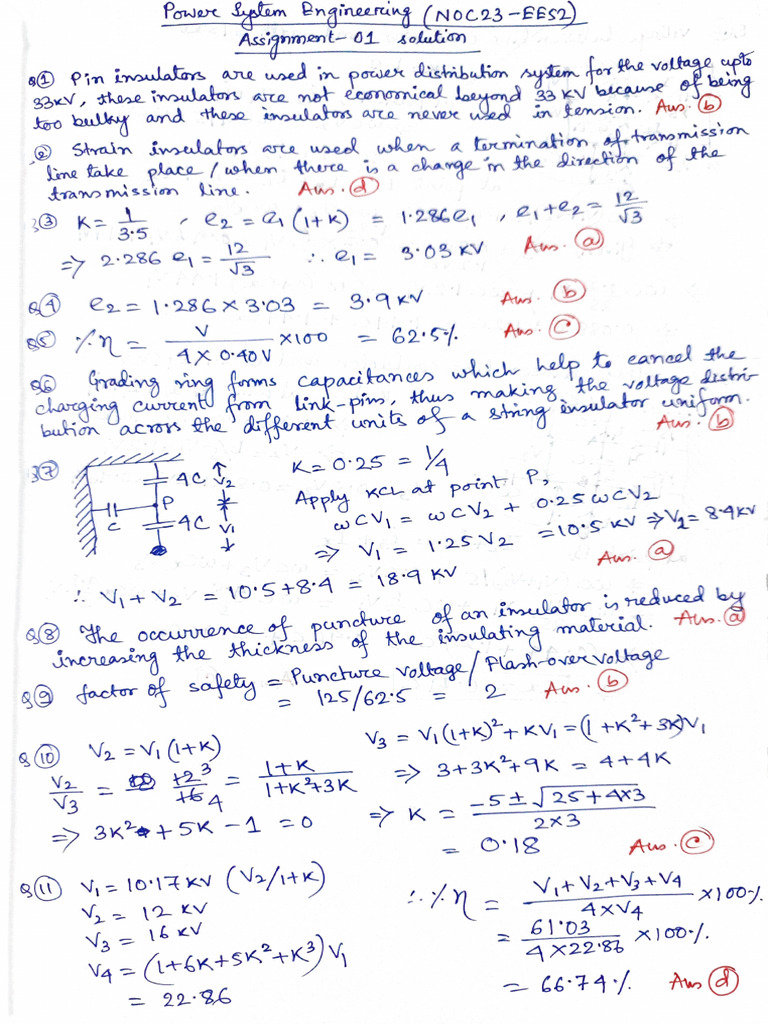 Power System Engineering (NOC23-EE52)
Assignment-01 solution
Q① Pin insulators are used in power distribution system for the voltage upto
33KV, these insulators are not economical beyond 33 KV because of being
too bulky and these insulators are never used in tension. Ans. ⓑ
② Strain insulators are used when a termination of transmission
line take place / when there is a change in the direction of the
transmission line. Ans. ⓓ
Q③ K = 1/3.5 , e2 = e1 (1+K) = 1.286e1 , e1+e2 = 12/√3
⇒ 2.286 e1 = 12/√3 ∴ e1 = 3.03 KV Ans. ⓐ
Q④ e2 = 1.286 × 3.03 = 3.9 KV Ans. ⓑ
Q⑤ % η = V/(4 × 0.40V) × 100 = 62.5% Ans. ⓒ
Q⑥ Grading ring forms capacitances which help to cancel the
charging current from link-pins, thus making the voltage distri-
bution across the different units of a string insulator uniform.
Ans. ⓑ
Q⑦ K = 0.25 = 1/4
4C V2
P
C 4C V1
Apply KCL at point P,
ωCV1 = ωCV2 + 0.25 ωCV2
⇒ V1 = 1.25 V2 = 10.5 KV ⇒ V2 = 8.4 KV
Ans. ⓐ
∴ V1 + V2 = 10.5 + 8.4 = 18.9 KV
Q⑧ The occurrence of puncture of an insulator is reduced by
increasing the thickness of the insulating material. Ans. ⓐ
Q⑨ factor of safety = Puncture voltage / Flash-over voltage
= 125/62.5 = 2 Ans. ⓑ
Q⑩ V2 = V1 (1+K) V3 = V1(1+K)² + KV1 = (1+K²+3K)V1
V2/V3 = 3/4 = (1+K)/(1+K²+3K) ⇒ 3+3K²+9K = 4+4K
⇒ 3K² + 5K - 1 = 0 ⇒ K = (-5 ± √(25+4×3))/(2×3)
= 0.18 Ans. ⓒ
Q⑪ V1 = 10.17 KV (V2/1+K)
V2 = 12 KV
V3 = 16 KV
V4 = (1+6K+5K²+K³) V1
= 22.86
∴ % η = (V1+V2+V3+V4)/(4×V4) × 100%
= 61.03/(4×22.86) × 100%.
= 66.74% Ans ⓓ